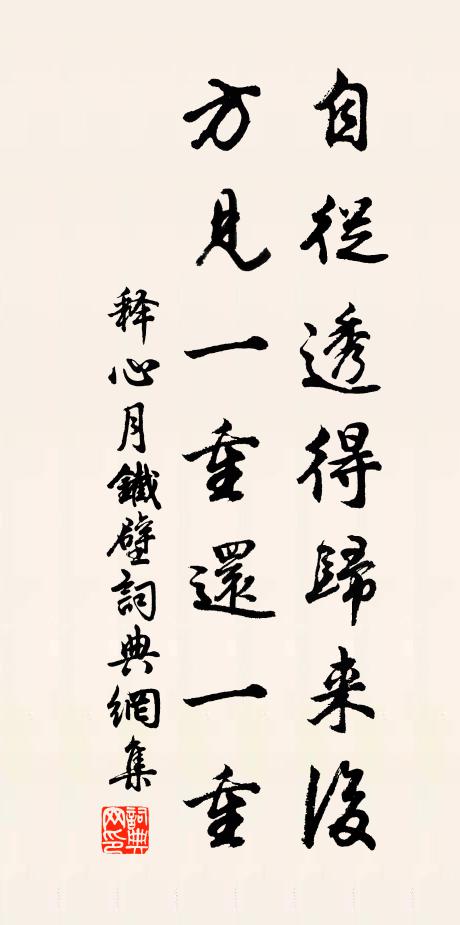 自從透得歸来後
方見一重還一重
释心月鐵壁詞典網集
詞典网印